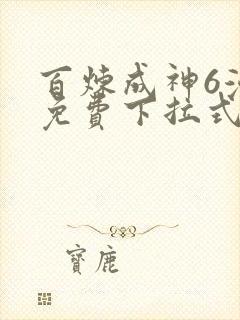 百炼成神6
免費下拉式
寶鹿